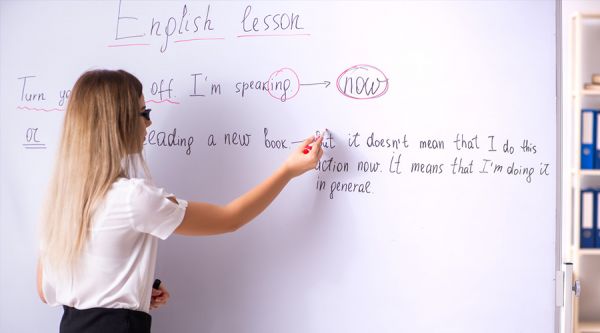 English lesson
Turn off. I'm speaking. now
or reading a new book. — But it doesn't mean that I do this
action now. It means that I'm doing it
in general.